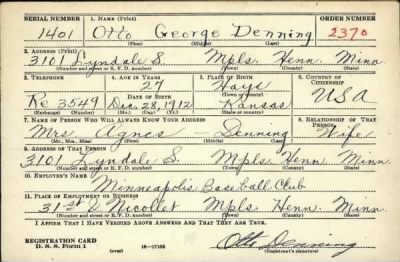 SERIAL NUMBER 1. NAME (Print) ORDER NUMBER
1401 Otto George Denning 2370
(First) (Middle) (Last)
2. ADDRESS (Print)
3101 Lyndale S. Mpls. Henn. Minn
(Number and street or R. F. D. number) (Town) (County) (State)
3. TELEPHONE 4. AGE IN YEARS 5. PLACE OF BIRTH 6. COUNTRY OF CITIZENSHIP
27 Hays
DATE OF BIRTH (Town or county)
Re 3549 Dec. 28, 1912 Kansas USA
(Exchange) (Number) (Mo.) (Day) (Yr.) (State or country)
7. NAME OF PERSON WHO WILL ALWAYS KNOW YOUR ADDRESS 8. RELATIONSHIP OF THAT PERSON
Mrs. Agnes — Denning Wife
(Mr., Mrs., Miss) (First) (Middle) (Last)
9. ADDRESS OF THAT PERSON
3101 Lyndale S. Mpls. Henn. Minn.
(Number and street or R. F. D. number) (Town) (County) (State)
10. EMPLOYER'S NAME
Minneapolis Baseball Club
11. PLACE OF EMPLOYMENT OR BUSINESS
31st & Nicollet Mpls. Henn. Minn.
(Number and street or R. F. D. number) (Town) (County) (State)
I AFFIRM THAT I HAVE VERIFIED ABOVE ANSWERS AND THAT THEY ARE TRUE.
REGISTRATION CARD
D. S. S. Form 1 (over) 16—17105 Otto Denning
(Registrant's signature)